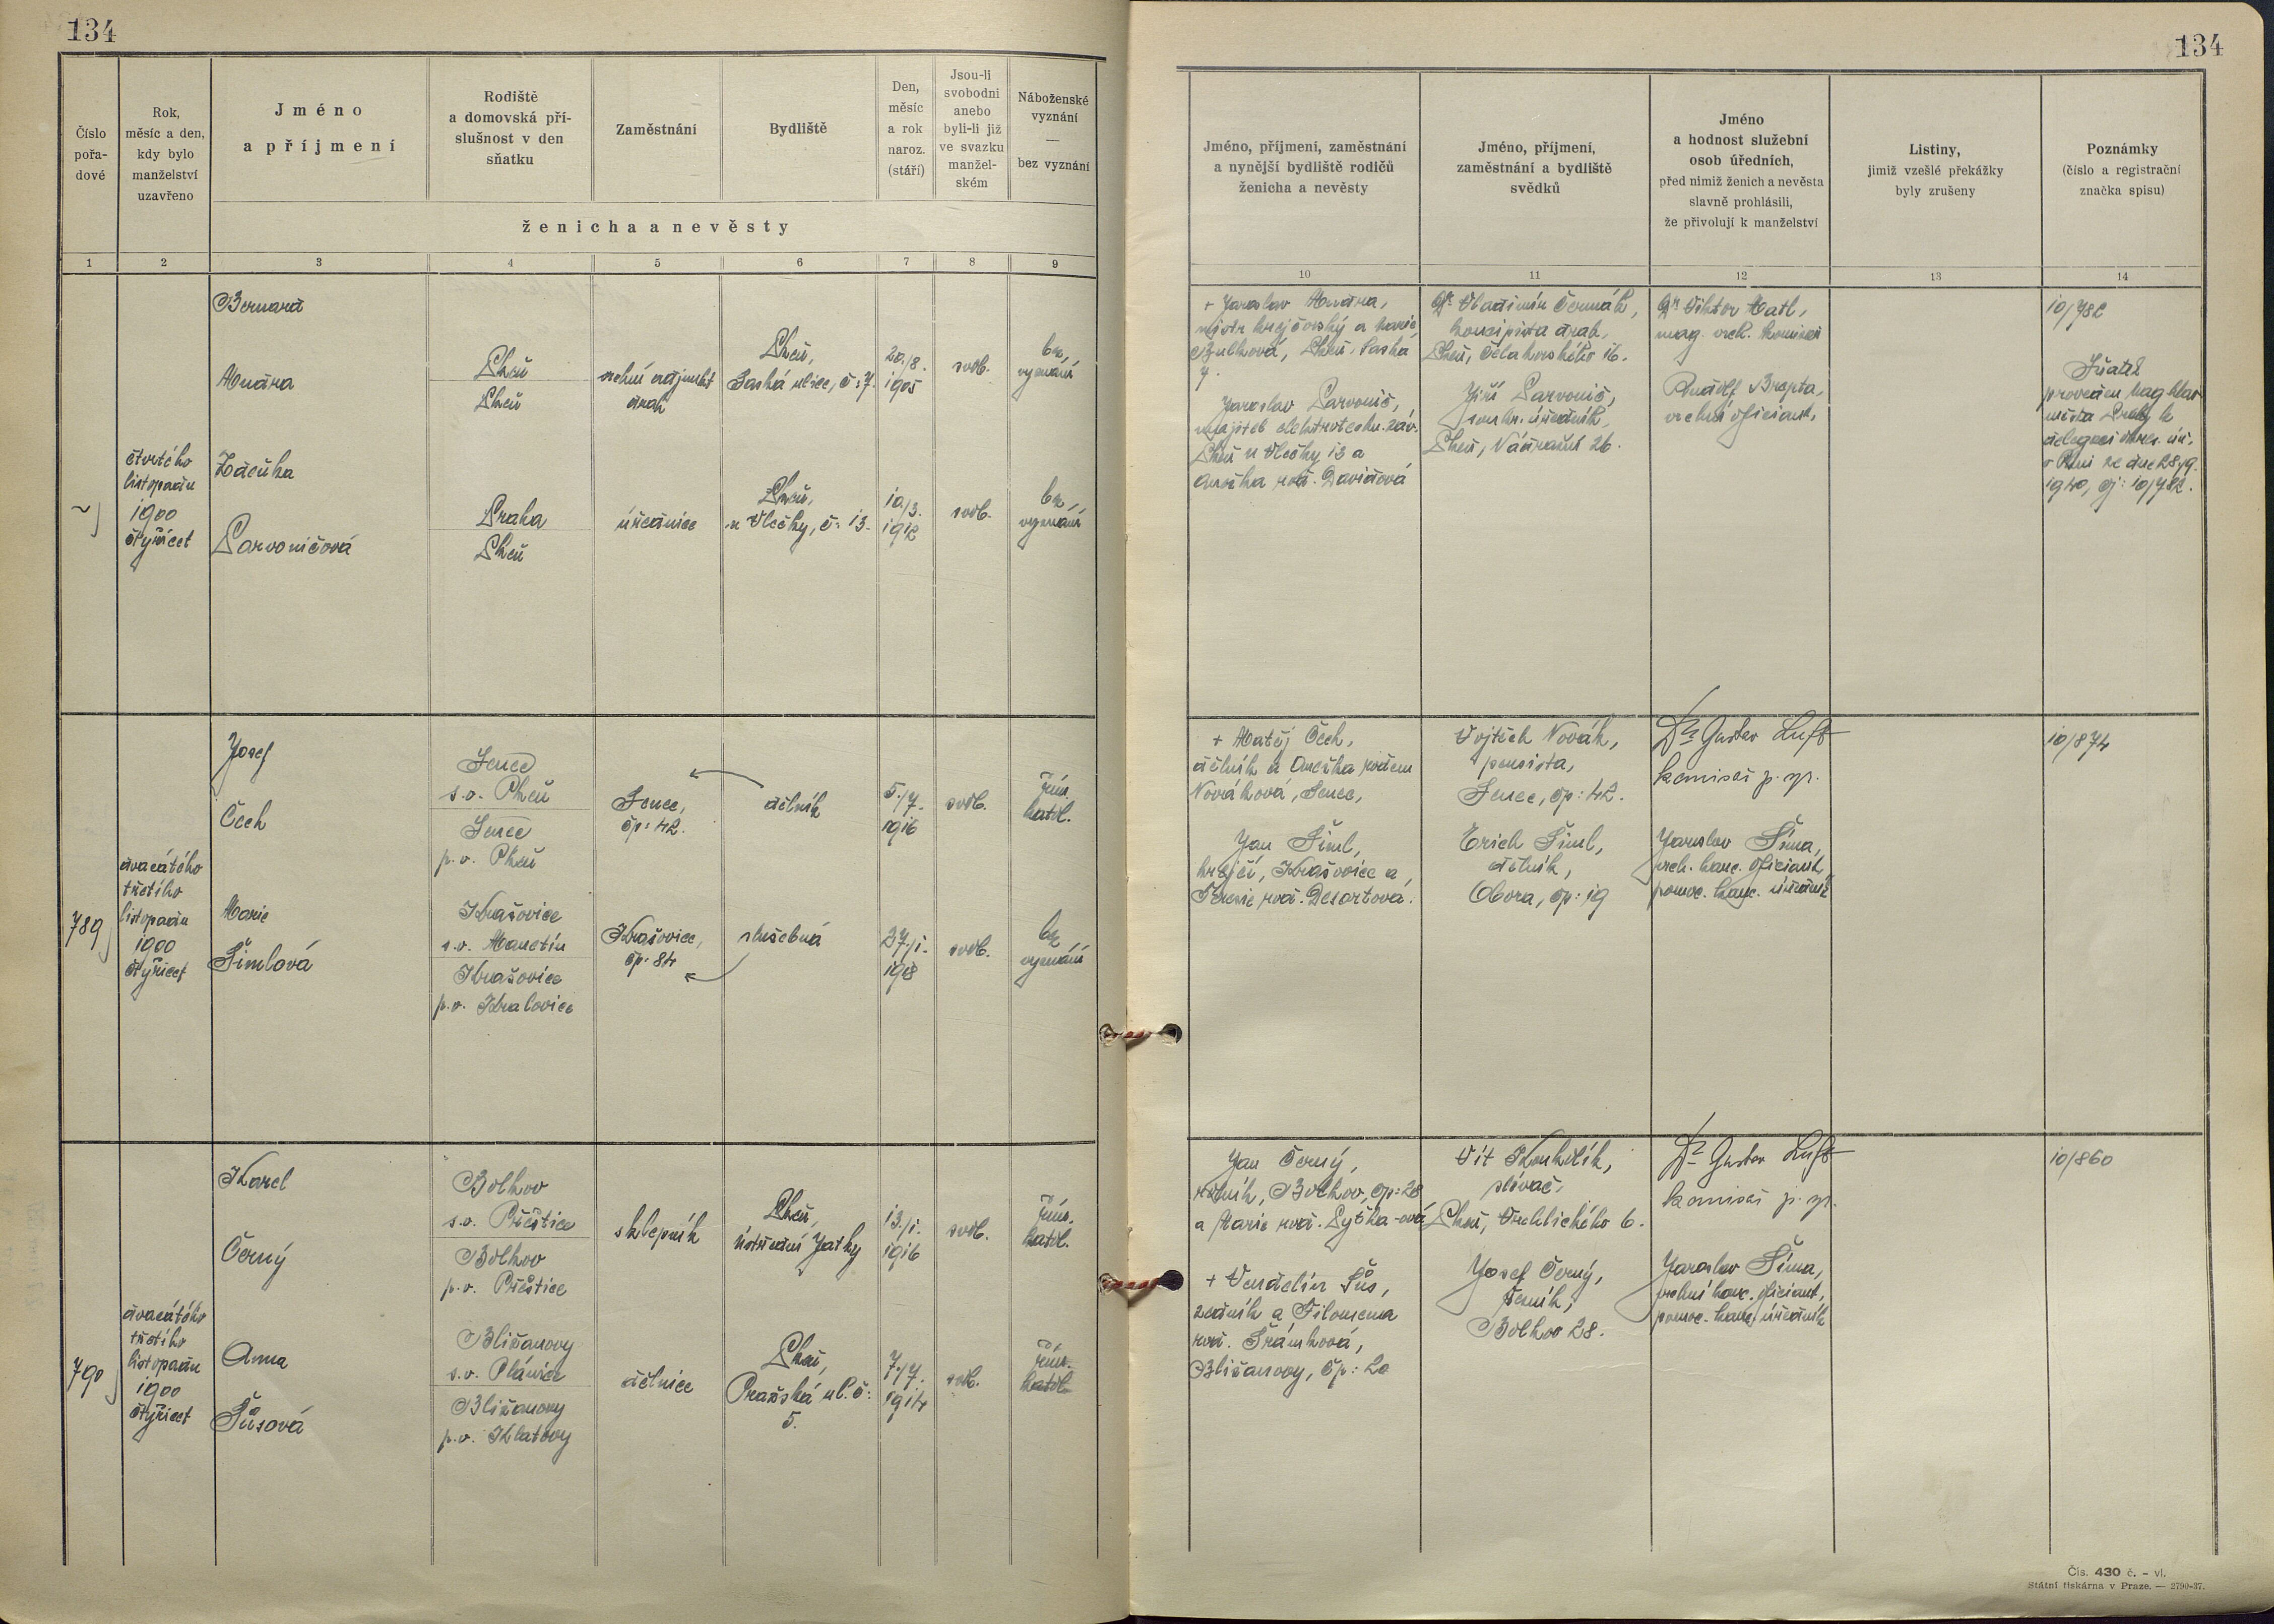 134
134
Číslo
pořa-
dové
Rok,
měsíc a den,
kdy bylo
manželství
uzavřeno
Jméno
a příjmení
Rodiště
a domovská pří-
slušnost v den
sňatku
Zaměstnání
Bydliště
Den,
měsíc
a rok
naroz.
(stáří)
Jsou-li
svobodni
anebo
byli-li již
ve svazku
manžel-
ském
Náboženské
vyznání
—
bez vyznání
ženicha a nevěsty
1 2 3 4 5 6 7 8 9
Jméno, příjmení, zaměstnání
a nynější bydliště rodičů
ženicha a nevěsty
Jméno, příjmení,
zaměstnání a bydliště
svědků
Jméno
a hodnost služební
osob úředních,
před nimiž ženich a nevěsta
slavně prohlásili,
že přivolují k manželství
Listiny,
jimiž vzešlé překážky
byly zrušeny
Poznámky
(číslo a registrační
značka spisu)
10 11 12 13 14
čtvrtého
listopadu
1900
čtyřicet
Bernard
Mudra
Plzeň
Plzeň
vrchní adjunkt
drah
Plzeň,
Saská ulice, č: 7.
20./8.
1905
svob.
bez
vyznání
Zdeňka
Parvoničová
Praha
Plzeň
úřednice
Plzeň,
u Vlečky, č: 13.
10./3.
1912
svob.
bez
vyznání
+ Jaroslav Mudra,
mistr krejčovský a Marie
Bulková, Plzeň, Saská
7.
Jaroslav Parvonič,
majitel elektrotechn. záv.
Plzeň u Vlečky 13 a
Anežka roz. Davidová
Dr. Vladimír Čermák,
koncipista drah,
Plzeň, Čelakovského 16.
Jiří Parvonič,
soukr. úředník,
Plzeň, Nádražní 26.
Dr Viktor Hatl,
mag. vrch. komisař
Rudolf Brejta,
vrchní oficiant.
10/782
Sňatek
proveden mag hlav
města Prahy k
delegaci okres. úř.
v Plzni ze dne 28/9.
1940, čj: 10/782.
789
dvacátého
třetího
listopadu
1900
čtyřicet
Josef
Čech
Senec
s.o. Plzeň
Senec
p.o. Plzeň
Senec,
čp: 42.
dělník
5./7.
1916
svob.
řím.
katol.
Marie
Šimlová
Krašovice
s.o. Manetín
Krašovice
p.o. Kralovice
Krašovice,
čp. 84
služebná
27./1.
1918
svob.
bez
vyznání
+ Matěj Čech,
dělník a Anežka rozen
Nováková, Senec,
Jan Šiml,
krejčí, Krašovice a
Terezie roz. Desortová.
Vojtěch Novák,
pensista,
Senec, čp: 42.
Erich Šiml,
dělník,
Obora, čp: 19
Dr Gustav Luft
komisař p. spr.
Jaroslav Šíma,
vrch. kanc. oficiant,
pomoc. kanc. úředník
10/874
790
dvacátého
třetího
listopadu
1900
čtyřicet
Karel
Černý
Bolkov
s.o. Přeštice
Bolkov
p.o. Přeštice
sklepník
Plzeň,
ústřední Jatky
13./1.
1916
svob.
řím.
katol.
Anna
Šůsová
Bližanovy
s.o. Plánice
Bližanovy
p.o. Klatovy
dělnice
Plzeň,
Pražská ul. č:
5.
7./7.
1914
svob.
řím.
katol.
Jan Černý,
rolník, Bolkov, čp: 28
a Marie roz. Pyška-ová
+ Vendelín Šůs,
zedník a Filomena
roz. Šrámková,
Bližanovy, čp: 20
Vít Koukolík,
slévač,
Plzeň, Vrchlického 6.
Josef Černý,
Bolkov 28.
Dr Gustav Luft
komisař p. spr.
Jaroslav Šíma,
vrchní kanc. oficiant,
pomoc. kanc. úředník
10/860
Čís. 430 č. - vl.
Státní tiskárna v Praze. — 2790-37.